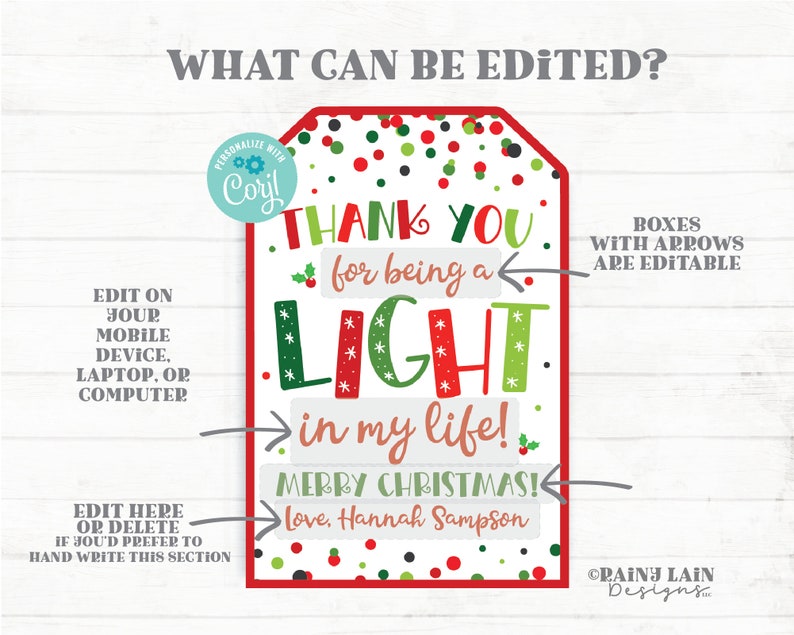 WHAT CAN BE EDiTED?
PERSONALIZE WITH
Corjl
THANK YOU
for being a
LIGHT
in my life!
MERRY CHRISTMAS!
Love, Hannah Sampson
BOXES
WiTH ARROWS
ARE EDiTABLE
EDiT ON
YOUR
MOBiLE
DEViCE,
LAPTOP, OR
COMPUTER
EDiT HERE
OR DELETE
iF YOU'D PREFER TO
HAND WRiTE THiS SECTiON
©RAiNY LAiN
Designs LLC